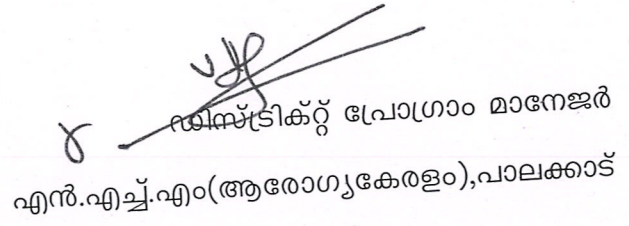 ഡിസ്ട്രിക്റ്റ് പ്രോഗ്രാം മാനേജർ
എൻ.എച്ച്.എം(ആരോഗ്യകേരളം),പാലക്കാട്